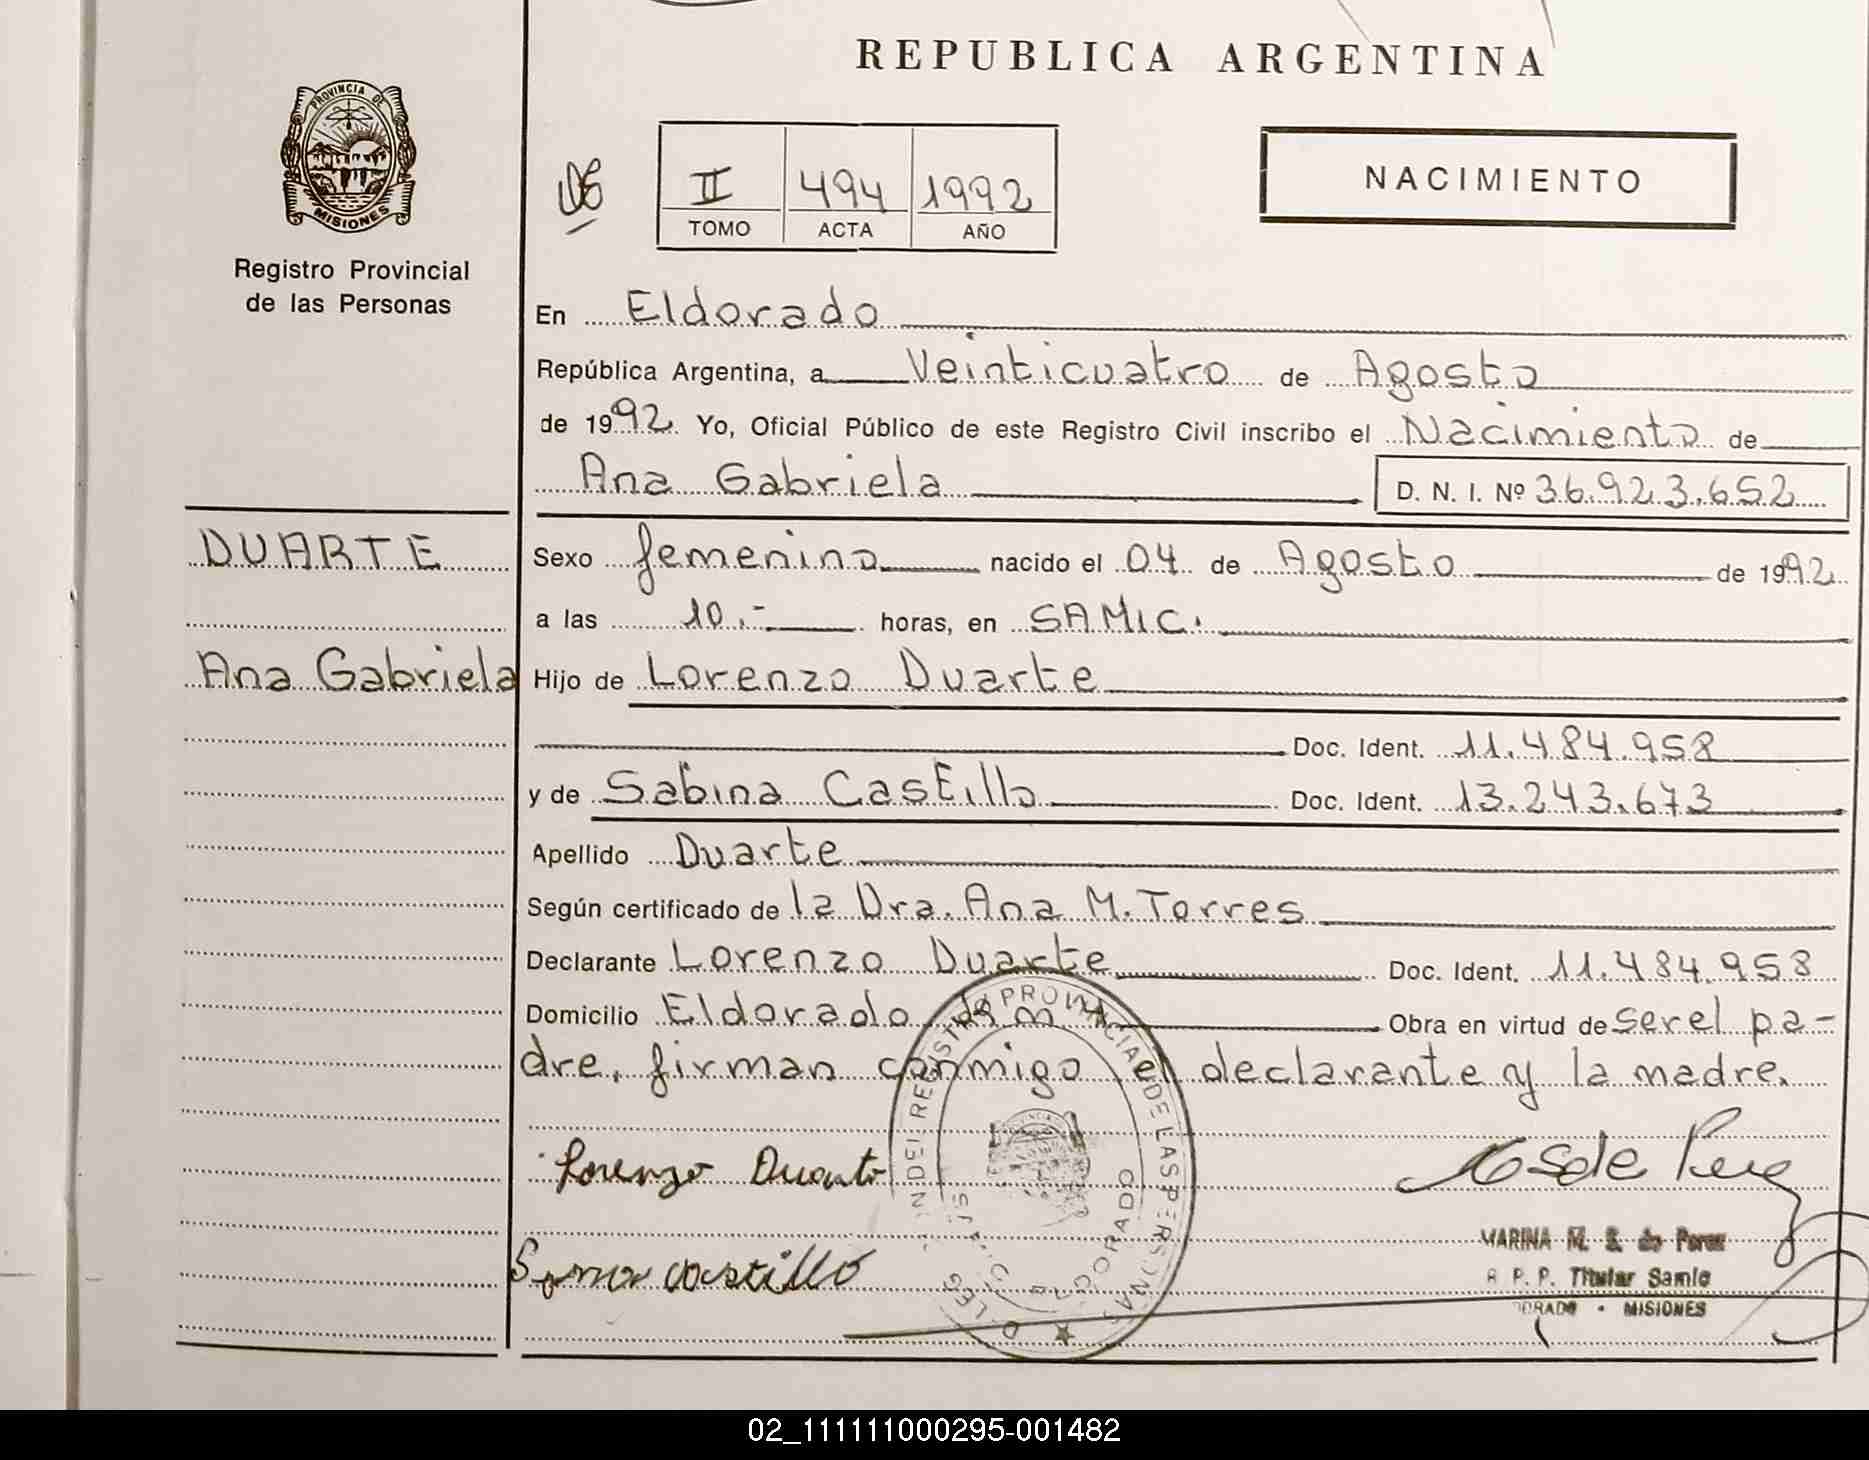 REPUBLICA ARGENTINA
PROVINCIA DE
MISIONES
Registro Provincial
de las Personas
II 494 1992
TOMO ACTA AÑO
NACIMIENTO
En Eldorado
República Argentina, a Veinticuatro de Agosto
de 1992. Yo, Oficial Público de este Registro Civil inscribo el Nacimiento de
Ana Gabriela D. N. I. Nº 36.923.652
DUARTE
Ana Gabriela
Sexo femenino nacido el 04 de Agosto de 1992
a las 10.- horas, en SAMIC.
Hijo de Lorenzo Duarte
Doc. Ident. 11.484.958
y de Sabina Castillo Doc. Ident. 13.243.673
Apellido Duarte
Según certificado de la Dra. Ana M. Torres
Declarante Lorenzo Duarte Doc. Ident. 11.484.958
Domicilio Eldorado Obra en virtud de ser el pa-
dre, firman conmigo el declarante y la madre.
Lorenzo Duarte
castillo
MARINA M. S. de Perez
R P. P. Titular Samic
DORADO - MISIONES
REGISTRO PROVINCIAL DE LAS PERSONAS
ELDORADO
02_111111000295-001482